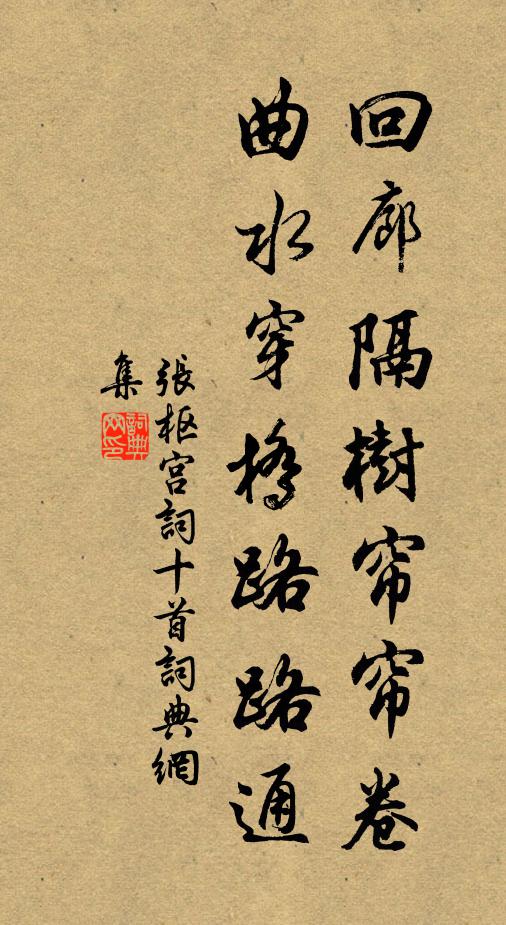 回廊隔樹帘帘卷
曲水穿橋路路通
張枢宫詞十首詞典網
集
詞典網印